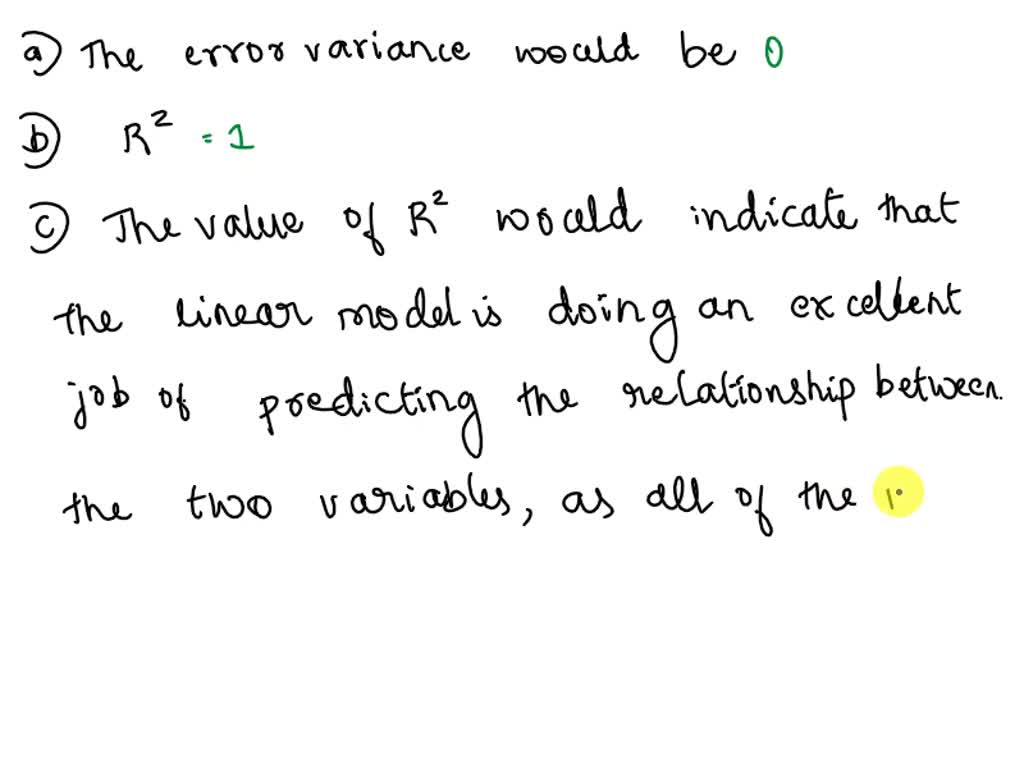 a) The error variance would be 0
b) R² = 1
c) The value of R² would indicate that
the linear model is doing an excellent
job of predicting the relationship between
the two variables, as all of the